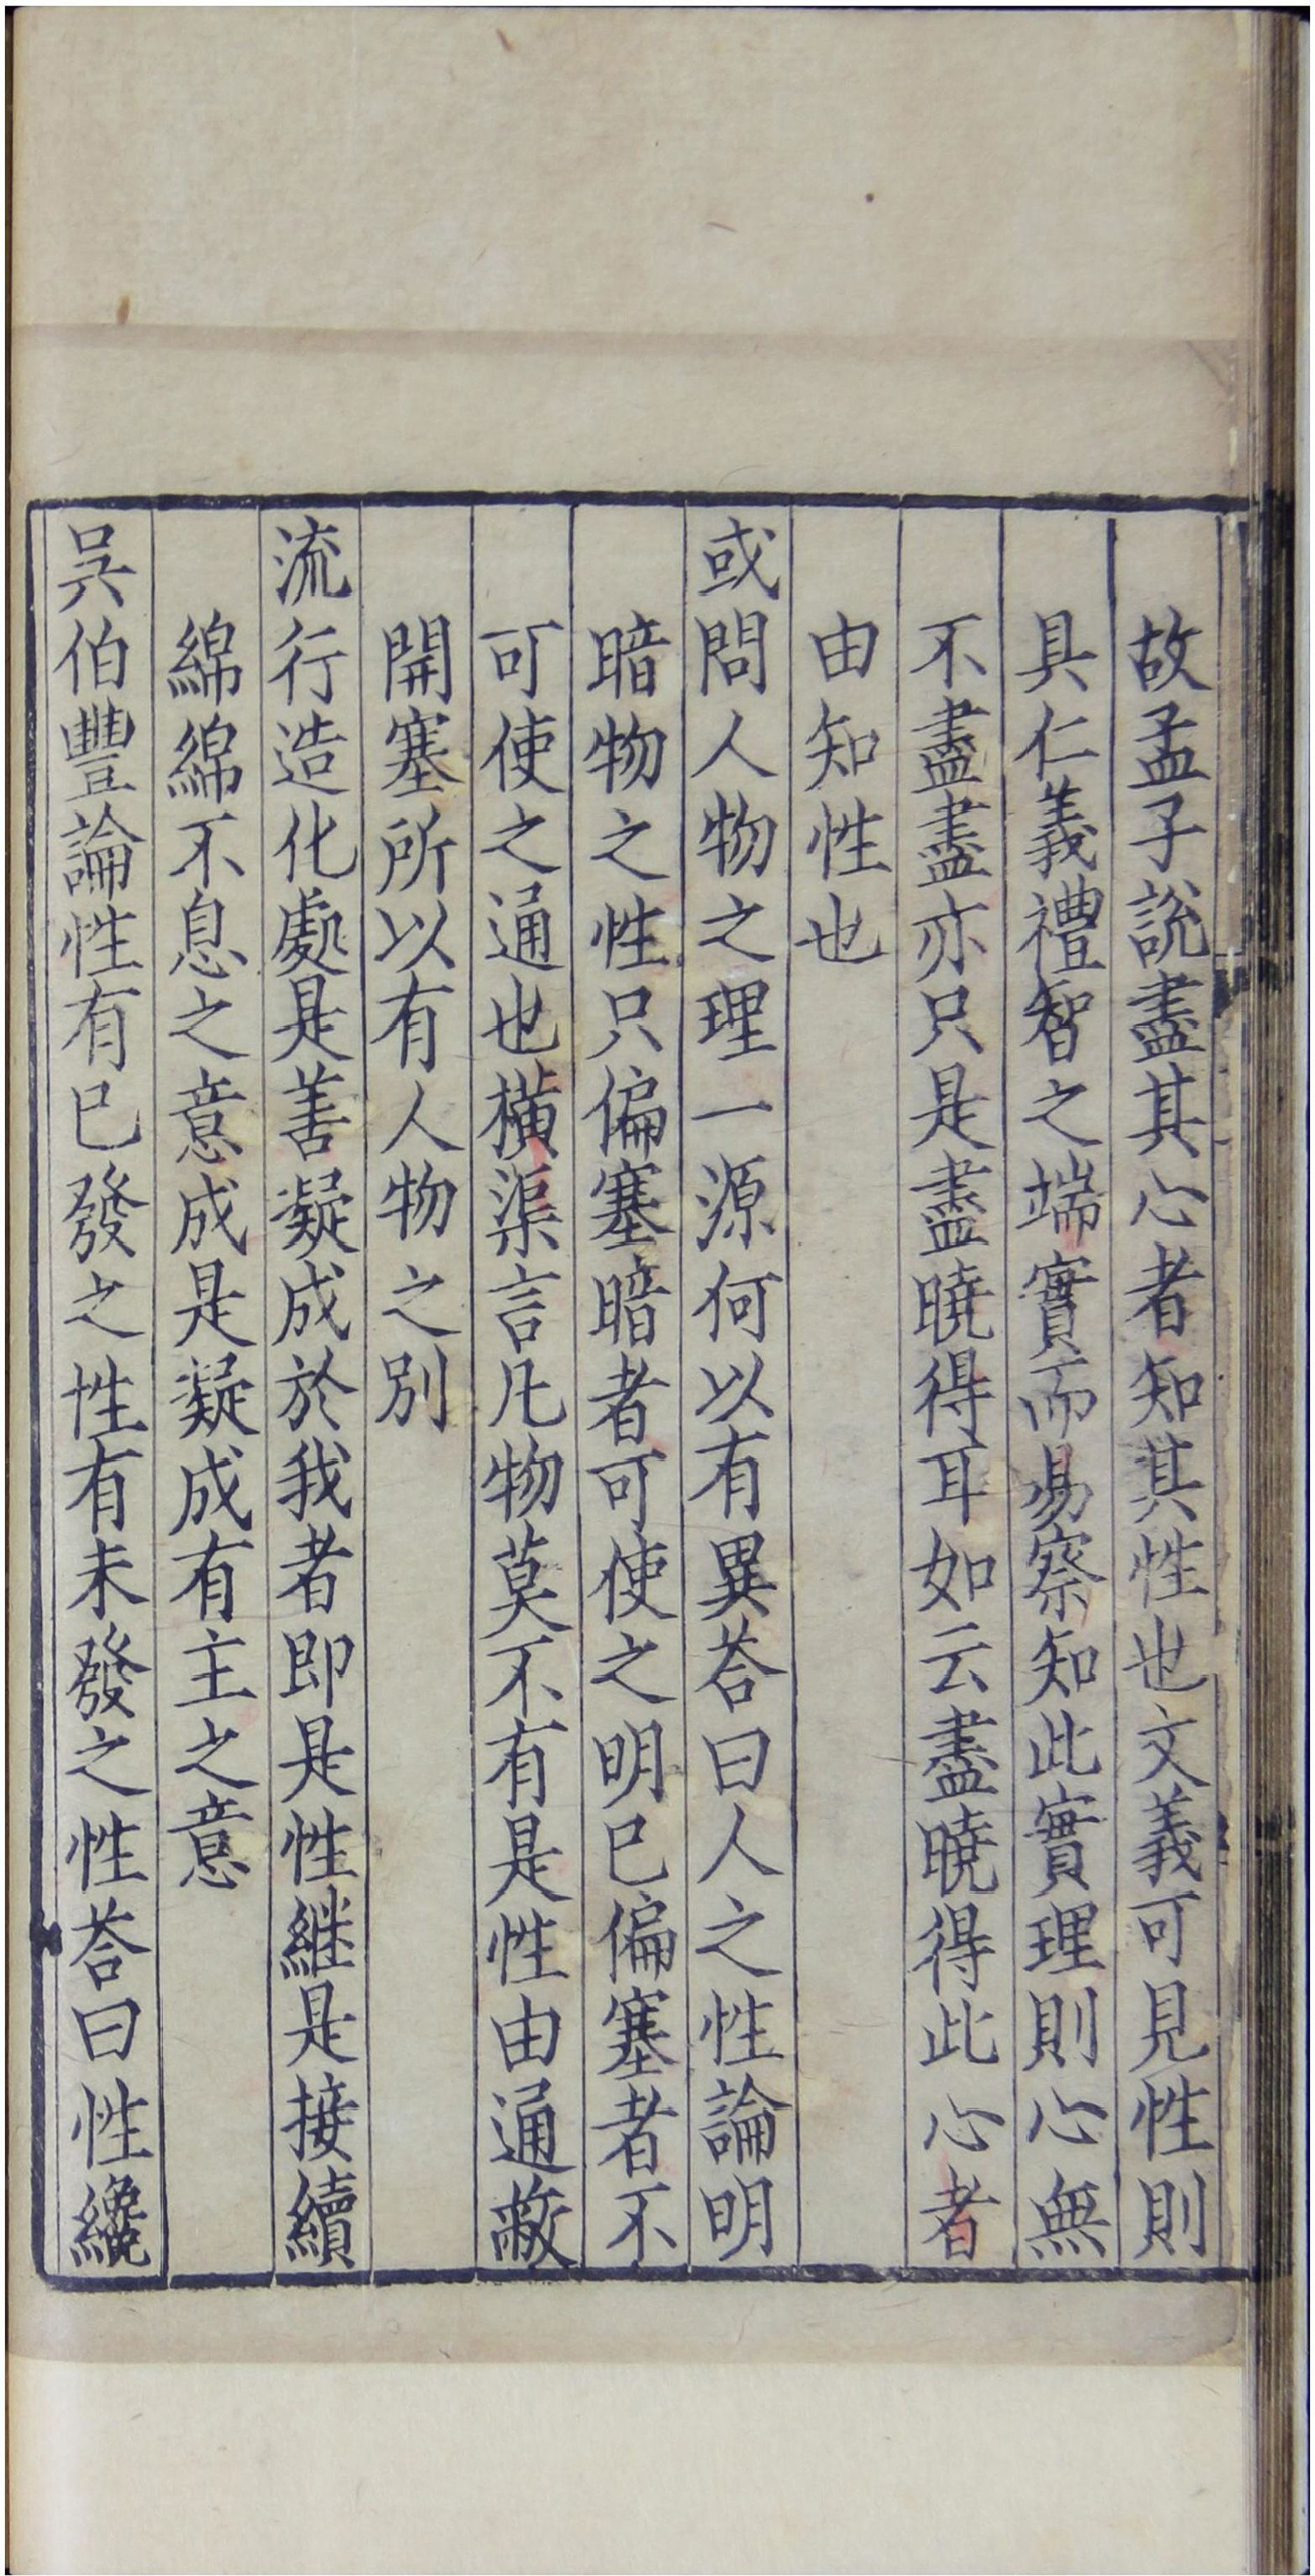 故孟子説盡其心者知其性也文義可見性則
具仁義禮智之端實而易察知此實理則心無
不盡盡亦只是盡曉得耳如云盡曉得此心者
由知性也
或問人物之理一源何以有異荅曰人之性論明
暗物之性只偏塞暗者可使之明已偏塞者不
可使之通也橫渠言凡物莫不有是性由通蔽
開塞所以有人物之別
流行造化處是善凝成於我者即是性継是接續
綿綿不息之意成是凝成有主之意
吳伯豐論性有已發之性有未發之性荅曰性纔